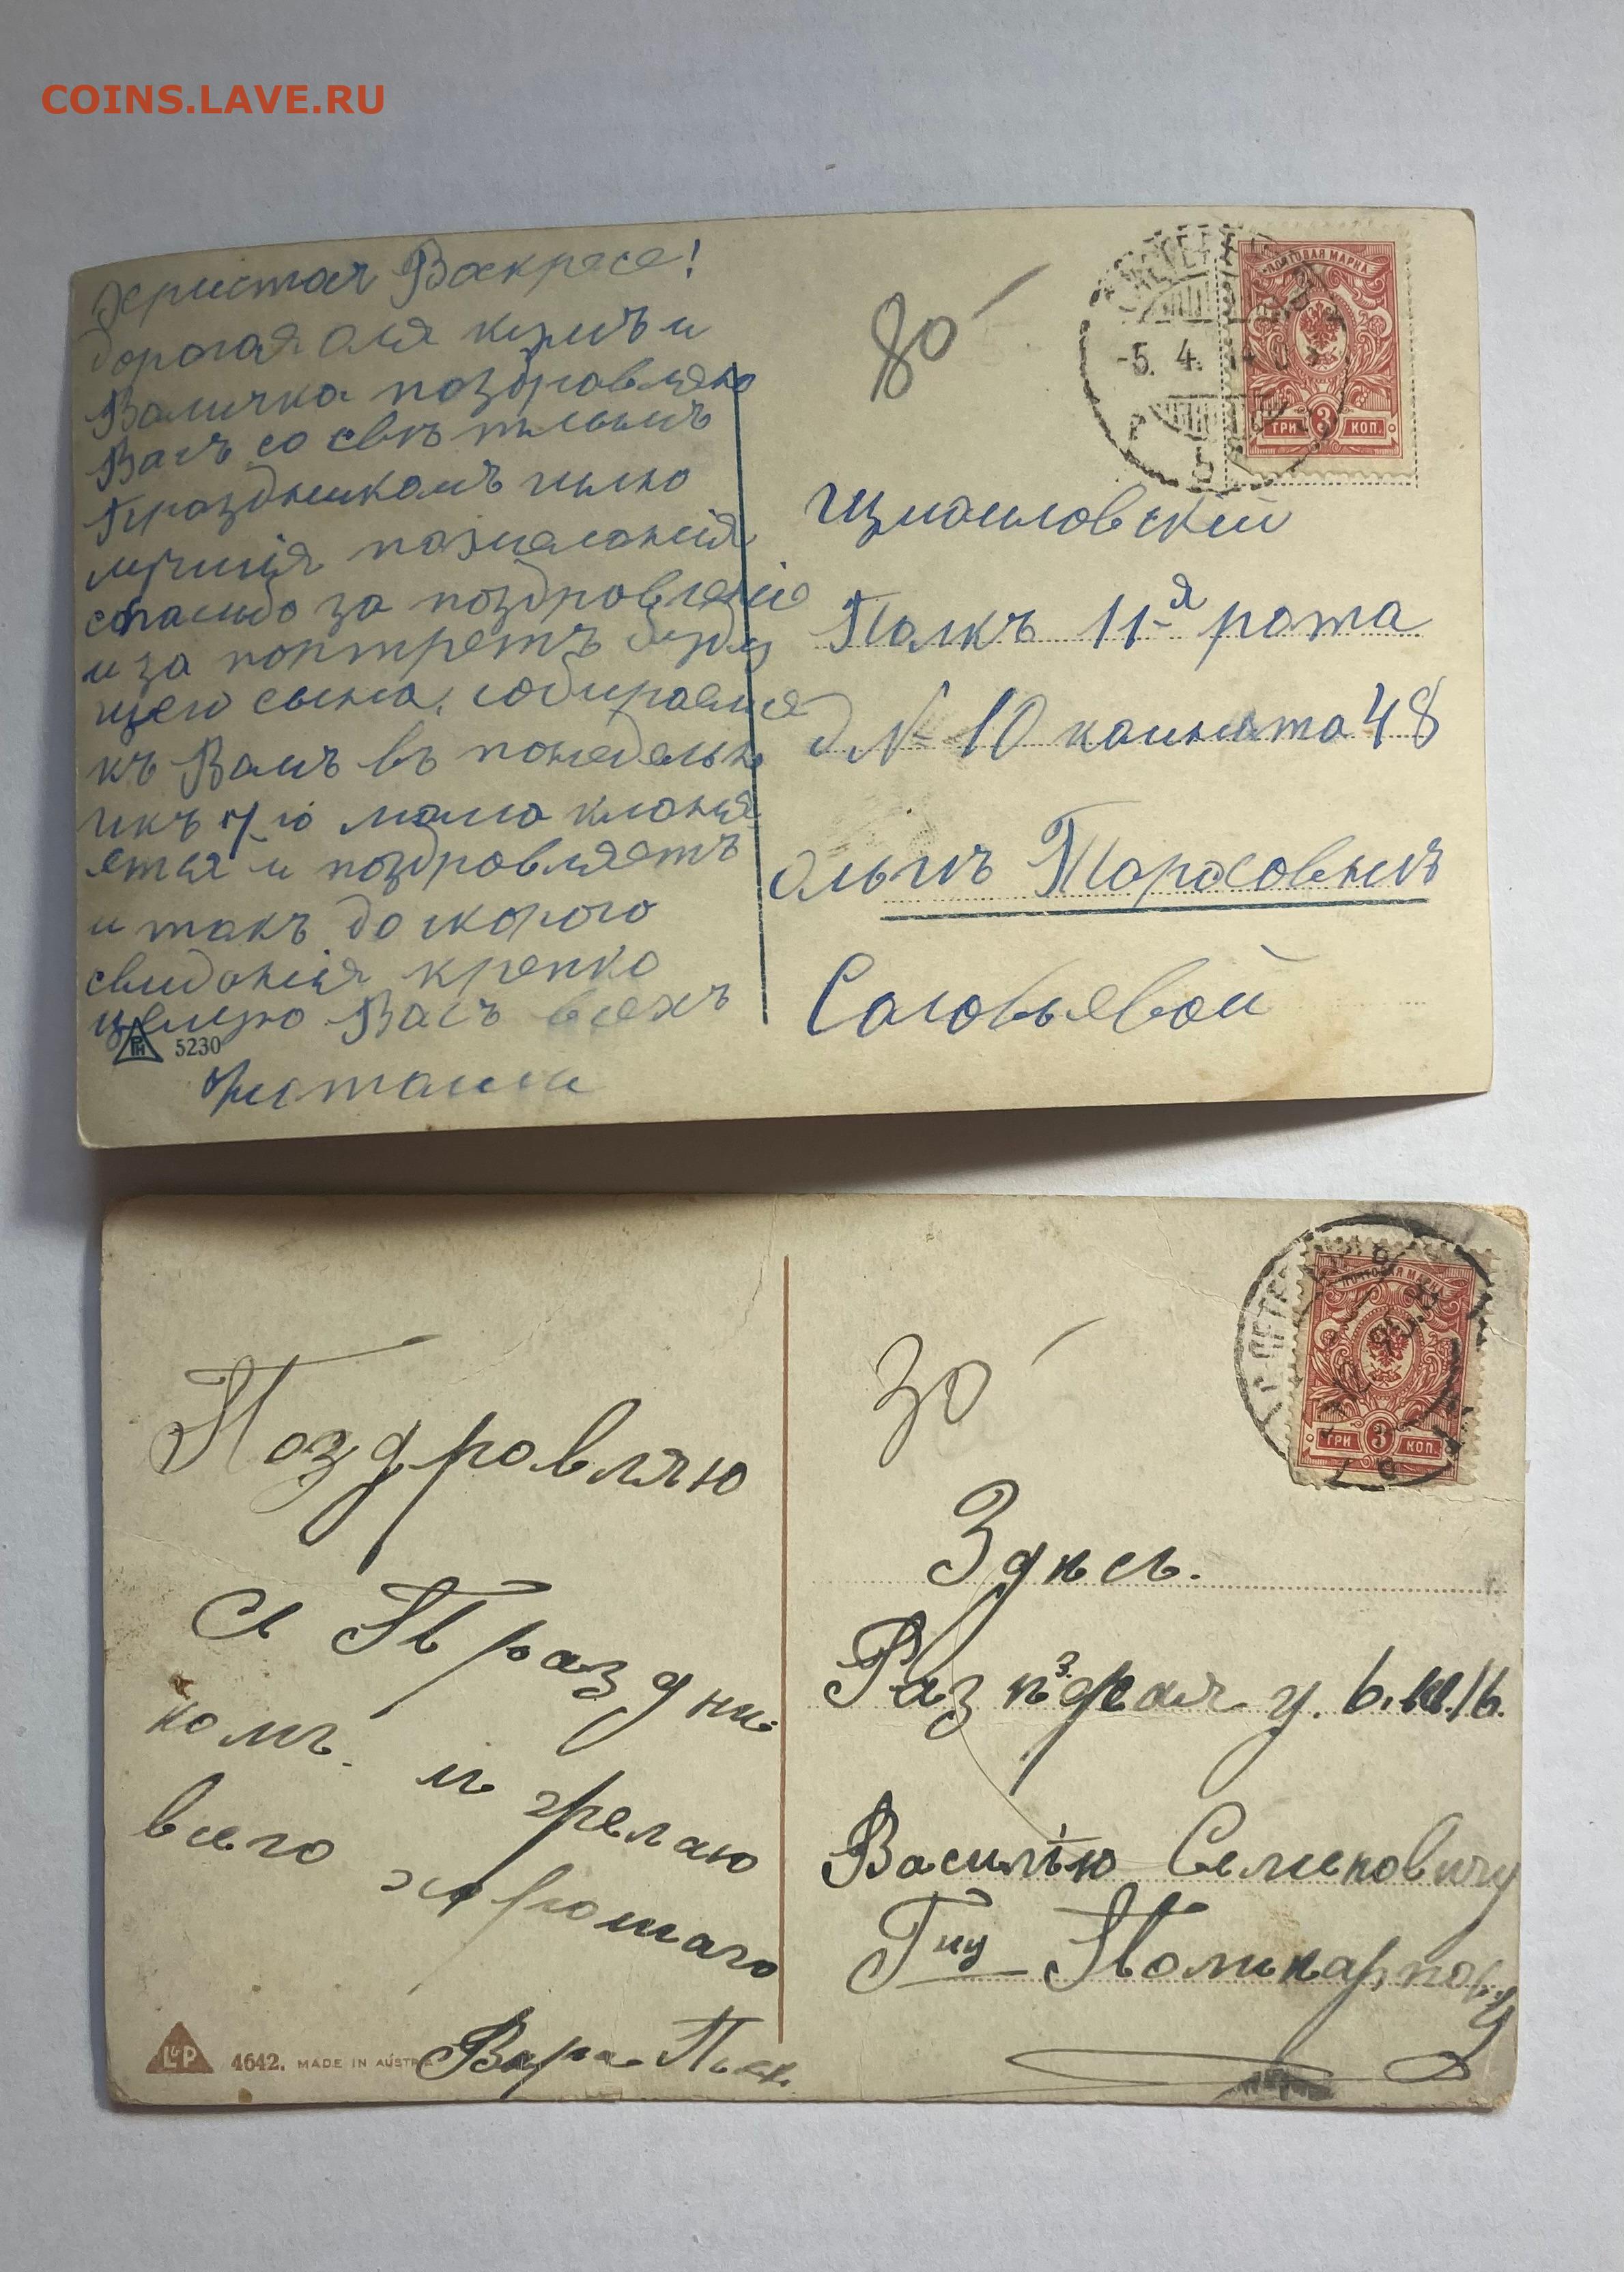 COINS.LAVE.RU
Христосъ Воскресе!
дорогая Оля кумъ и
Валичка поздровляю
Васъ со свѣтлымъ
Праздникомъ шлю
лучшія пожеланія
спасибо за поздровленіе
и за портретъ буду
щего сына, собираемся
къ Вамъ въ понедельн
икъ 7/го мама кланя
ется и поздровляетъ
и такъ до скорого
свиданія крепко
целую Васъ всехъ
РН 5230
80
-5. 4. 14
ПОЧТОВАЯ МАРКА
ТРИ 3 КОП.
Измаиловский
Полкъ 11-я рота
д № 10 комната 48
Ольгѣ Тарасовнѣ
Соловьевой
Поздровляю
Съ Праздни
комъ. и желаю
всего хорошаго
Варя
L&P 4642. MADE IN AUSTR
30
С.ПЕТЕР
ПОЧТОВАЯ МАРКА
ТРИ 3 КОП.
Здѣсь.
Василію Семеновичу
Гну Поликарпову